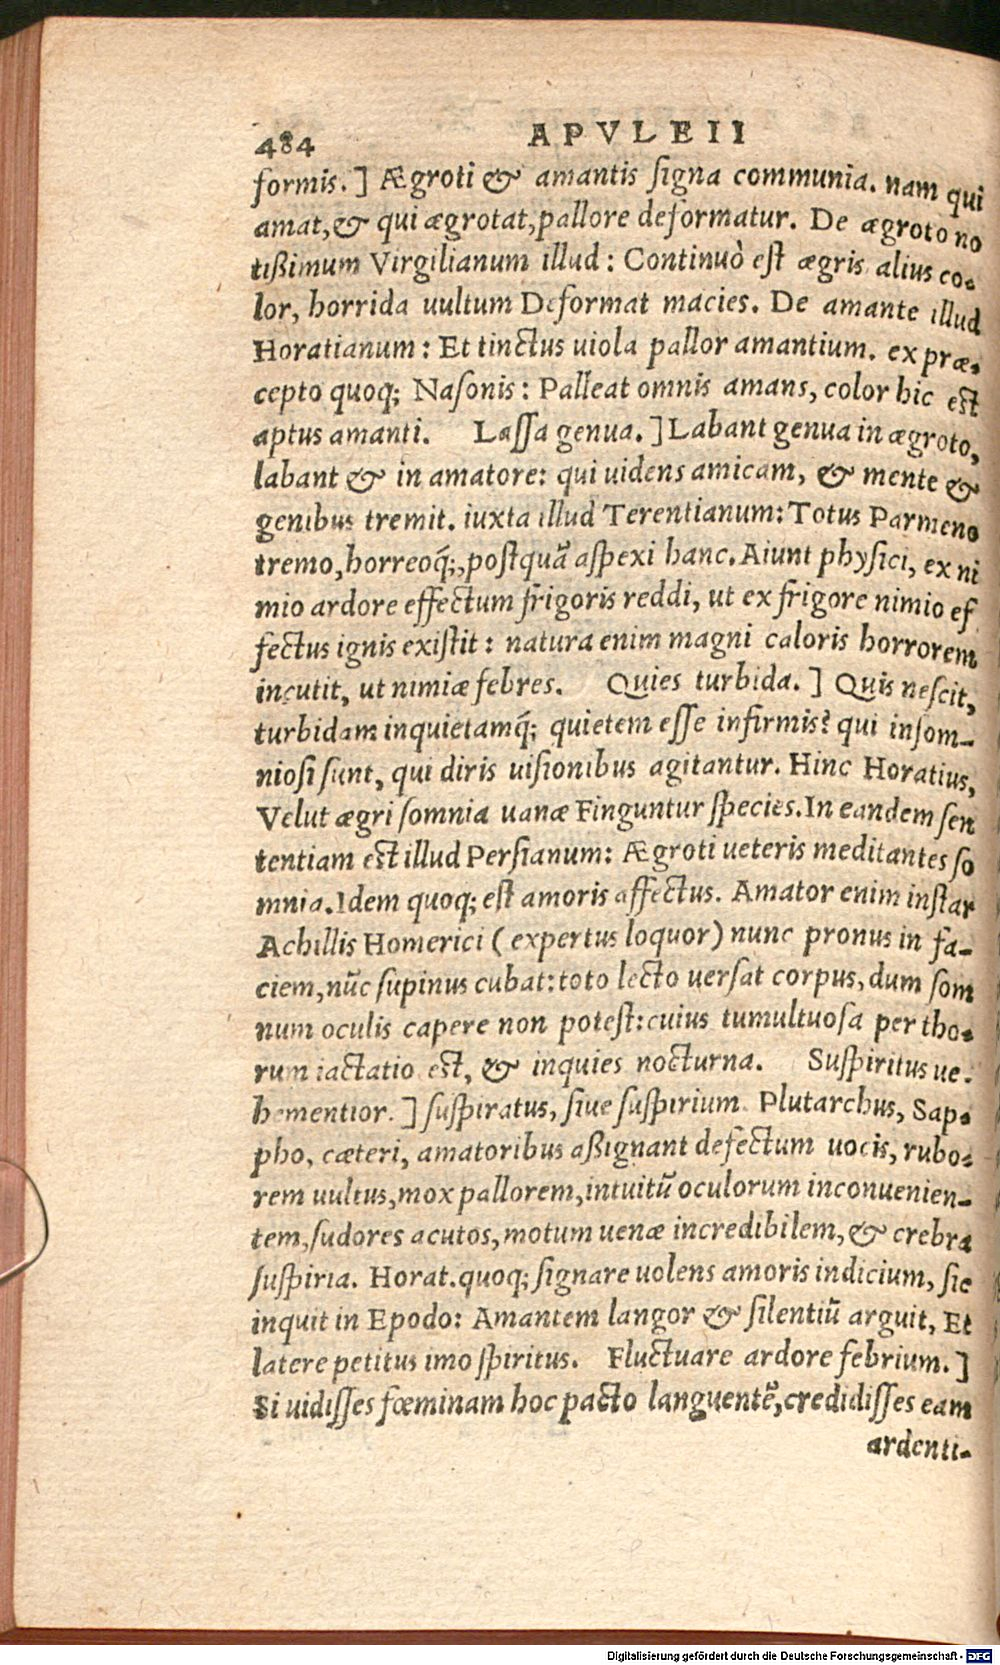 484 APVLEII
formis.] Ægroti & amantis signa communia. nam qui
amat, & qui ægrotat, pallore deformatur. De ægroto no
tißimum Virgilianum illud: Continuò est ægris alius co-
lor, horrida uultum Deformat macies. De amante illud
Horatianum: Et tinctus uiola pallor amantium. ex præ-
cepto quoq; Nasonis: Palleat omnis amans, color hic est
aptus amanti. Lassa genua.] Labant genua in ægroto,
labant & in amatore: qui uidens amicam, & mente &
genibus tremit. iuxta illud Terentianum: Totus Parmeno
tremo, horreoq́;, postquã aspexi hanc. Aiunt physici, ex ni
mio ardore effectum frigoris reddi, ut ex frigore nimio ef
fectus ignis existit: natura enim magni caloris horrorem
incutit, ut nimiæ febres. Quies turbida.] Quis nescit,
turbidam inquietamq́; quietem esse infirmis? qui insom-
niosi sunt, qui diris uisionibus agitantur. Hinc Horatius,
Velut ægri somnia uanæ Finguntur species. In eandem sen
tentiam est illud Persianum: Ægroti ueteris meditantes so
mnia. Idem quoq; est amoris affectus. Amator enim instar
Achillis Homerici (expertus loquor) nunc pronus in fa-
ciem, nũc supinus cubat: toto lecto uersat corpus, dum som
num oculis capere non potest: cuius tumultuosa per tho-
rum iactatio est, & inquies nocturna. Suspiritus ue-
hementior.] suspiratus, siue suspirium. Plutarchus, Sap-
pho, cæteri, amatoribus aßignant defectum uocis, rubo-
rem uultus, mox pallorem, intuitũ oculorum inconuenien-
tem, sudores acutos, motum uenæ incredibilem, & crebra
suspiria. Horat. quoq; signare uolens amoris indicium, sic
inquit in Epodo: Amantem langor & silentiũ arguit, Et
latere petitus imo spiritus. Fluctuare ardore febrium.]
Si uidisses fœminam hoc pacto languentẽ, credidisses eam
ardenti-
Digitalisierung gefördert durch die Deutsche Forschungsgemeinschaft - DFG